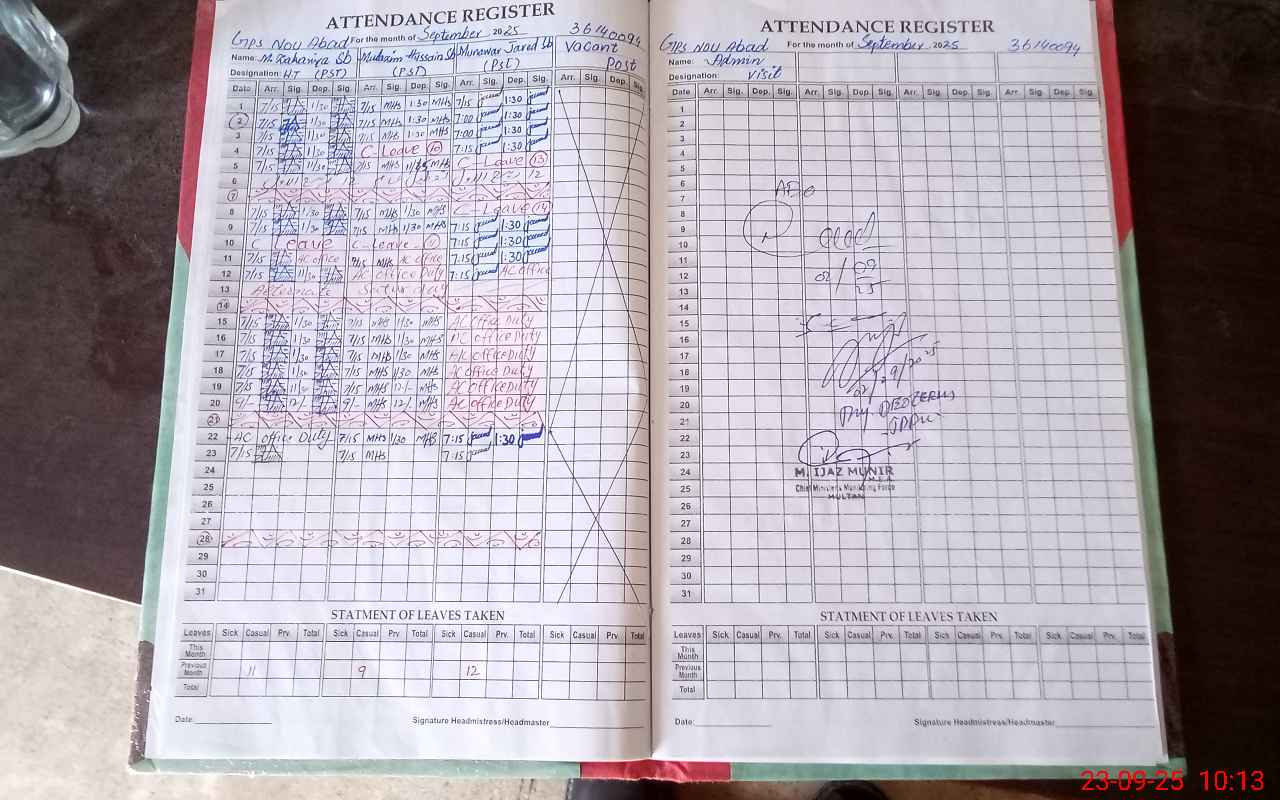 ATTENDANCE REGISTER
GPS Nou Abad For the month of September 2025 36140094
Name: M. Zakariya Sb Mulazim Hussain Sb Munawar Javed Sb Vacant
Designation: H.T (PST) (PST) (PST) Post
Date Arr. Sig. Dep. Sig. Arr. Sig. Dep. Sig. Arr. Sig. Dep. Sig. Arr. Sig. Dep. Sig.
1 7/15 1/30 7/15 MHS 1:30 MHS 7/15 1:30
2 7/15 1/30 7/15 MHS 1:30 MHS 7:00 1:30
3 7/15 11/30 7/15 MHS 1:30 MHS 7:00 1:30
4 7/15 11/30 C-Leave (10) 7:15 1:30
5 7/15 11/30 7/15 MHS MHS C-Leave (13)
6 12
7
8 7/15 1/30 7/15 MHS 1/30 MHS C-Leave (14)
9 7/15 1/30 7/15 MHS 1/30 MHS 7:15 1:30
10 C Leave C-Leave 7:15 1:30
11 7/15 AC office 7/15 MHS AC office 7:15 1:30
12 7/15 11/30 AC office Duty 7:15 AC office
13 Alternate Saturday
14
15 7/15 1/30 7/15 MHS 1/30 MHS AC office Duty
16 7/15 1/30 7/15 MHS 1/30 MHS AC office Duty
17 7/15 1/30 7/15 MHS 1/30 MHS AC office Duty
18 7/15 1/30 7/15 MHS 1/30 MHS AC office Duty
19 7/15 11/30 7/15 MHS 12/- MHS AC office Duty
20 9/- 12/- 9/- MHS 12/- MHS AC office Duty
21
22 AC office Duty 7/15 MHS 1/30 MHS 7:15 1:30
23 7/15 7/15 MHS 7:15
24
25
26
27
28
29
30
31
STATMENT OF LEAVES TAKEN
Leaves Sick Casual Prv. Total Sick Casual Prv. Total Sick Casual Prv. Total Sick Casual Prv. Total
This Month
Previous Month 11 9 12
Total
Date: Signature Headmistress/Headmaster
ATTENDANCE REGISTER
GPS Nou Abad For the month of September 2025 36140094
Name: Admin
Designation: visit
Date Arr. Sig. Dep. Sig. Arr. Sig. Dep. Sig. Arr. Sig. Dep. Sig. Arr. Sig. Dep. Sig.
1
2
3
4
5
6
7 AEO
8
9
10
11
12 02/09
13 25
14
15
16
17
18
19 02/09/2025
20
21
22
23
24 M. IJAZ MUNIR
M.E.A
25 Chief Ministers Monitoring Force
MULTAN
26
27
28
29
30
31
STATMENT OF LEAVES TAKEN
Leaves Sick Casual Prv. Total Sick Casual Prv. Total Sick Casual Prv. Total Sick Casual Prv. Total
This Month
Previous Month
Total
Date: Signature Headmistress/Headmaster
23-09-25 10:13